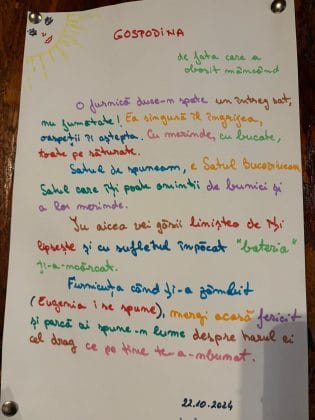 GOSPODINA
de fata care a
obosit mâncând
O furnică duce-n spate un întreg sat,
nu jumătate! Ea singură îl îngrijea,
oaspeții îi aștepta. Cu merinde, cu bucate,
toate pe săturate.
Satul de spuneam, e Satul Bucovinean
Satul care îți poate aminti de bunici și
a lor merinde.
Tu aicea vei găsi liniștea de-ți
lipsește și cu sufletul împăcat "bateria"
ți-a-ncărcat.
Furnicuța când ți-a zâmbit
(Eugenia i se spune), mergi acasă fericit
și parcă ai spune-n lume despre harul ei
cel drag ce pe tine te-a-mbunat.
22.10.2024